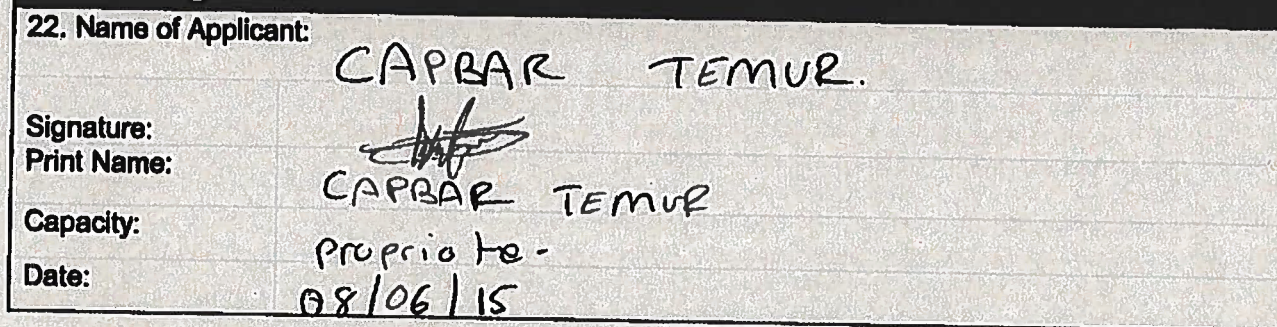 22. Name of Applicant: CAPBAR TEMUR.
Signature:
Print Name: CAPBAR TEMUR
Capacity: proprio te-
Date: 08/06/15